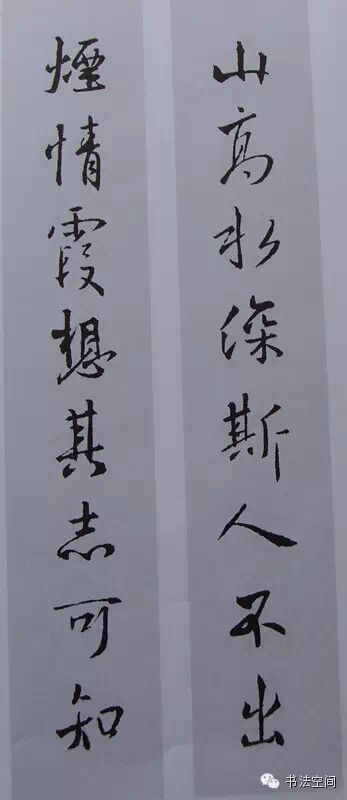 山高水深斯人不出
煙情霞想其志可知
书法空间